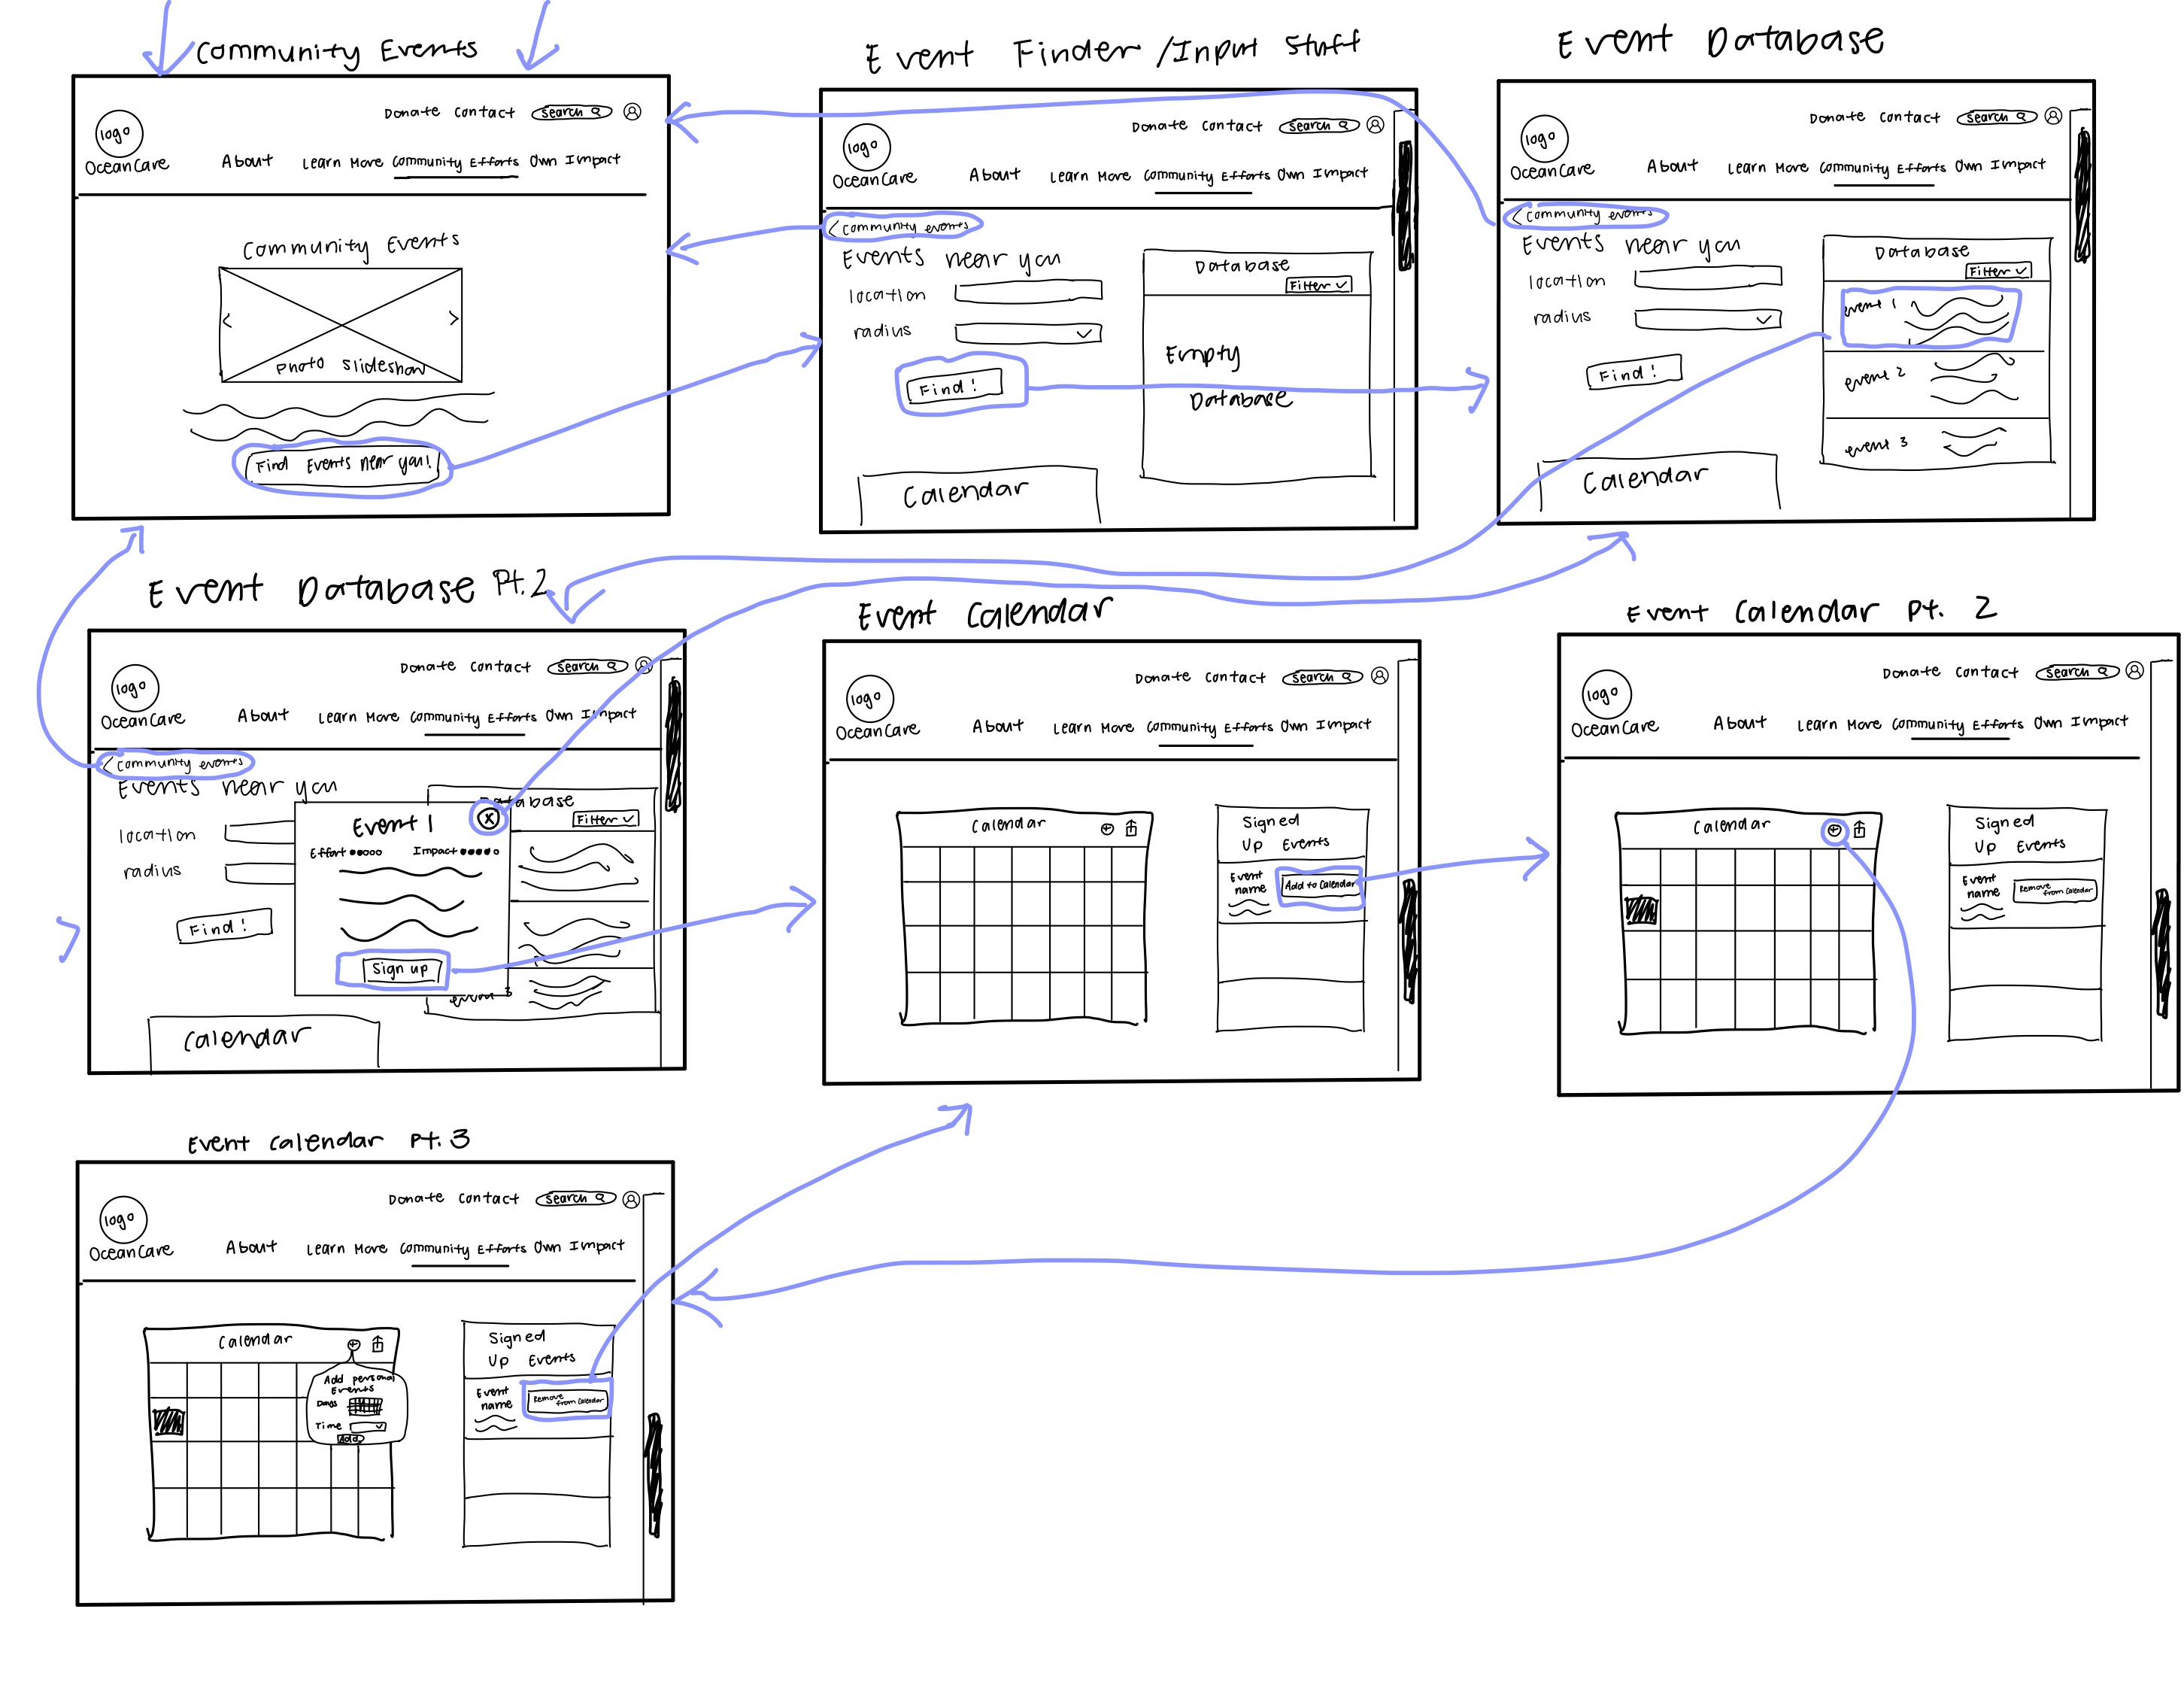 Community Events
Donate Contact Search
logo
OceanCare
About Learn More Community Efforts Own Impact
Community Events
Photo Slideshow
Find Events near you!
Event Finder/Input Stuff
Donate Contact Search
logo
OceanCare
About Learn More Community Efforts Own Impact
< Community events
Events near you
location
radius
Find!
Database
Filter
Empty
Database
Calendar
Event Database
Donate Contact Search
logo
OceanCare
About Learn More Community Efforts Own Impact
< Community events
Events near you
location
radius
Find!
Database
Filter
event 1
event 2
event 3
Calendar
Event Database Pt.2
Donate Contact Search
logo
OceanCare
About Learn More Community Efforts Own Impact
< Community events
Events near you
location
radius
Find!
Event 1 X
Effort Impact
Sign up
Database
Filter
event 3
Calendar
Event Calendar
Donate Contact Search
logo
OceanCare
About Learn More Community Efforts Own Impact
Calendar
Signed
Up Events
Event
name
Add to Calendar
Event Calendar Pt. 2
Donate Contact Search
logo
OceanCare
About Learn More Community Efforts Own Impact
Calendar
Signed
Up Events
Event
name
Remove
from Calendar
Event Calendar Pt.3
Donate Contact Search
logo
OceanCare
About Learn More Community Efforts Own Impact
Calendar
Add personal
Events
Days
Time
Add
Signed
Up Events
Event
name
Remove
from Calendar